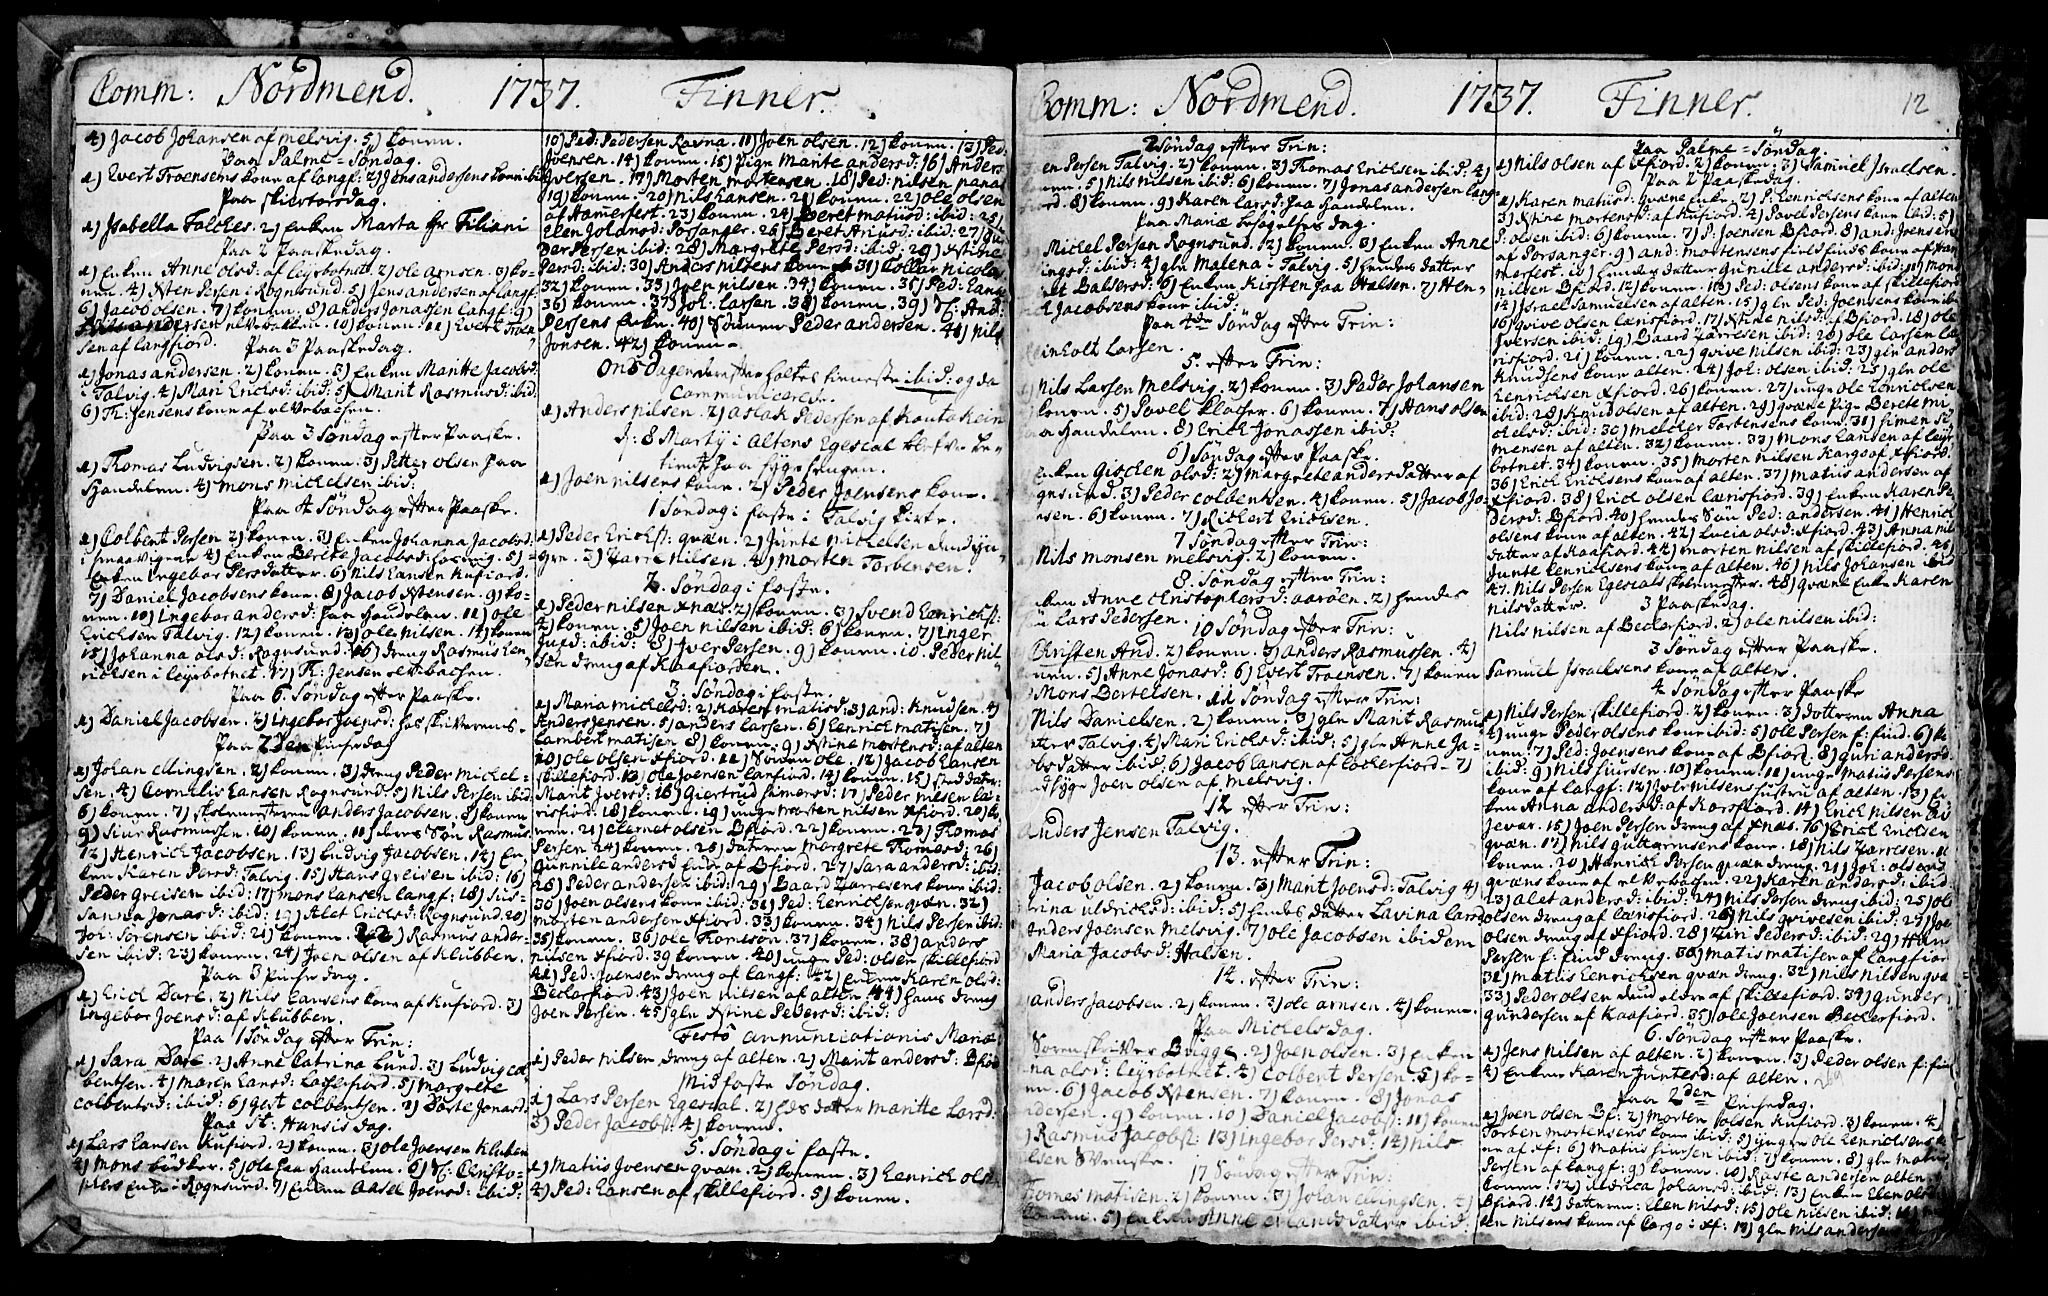 Comm: Nordmend. 1737. Finner.
4) Jacob Johansen af Melsvig. 5) konen.
Paa Palme=Søndag.
1) Evert Troensens kone af Langf: 2) Jens Andersens kone ibid
Paa Skiertorsdag.
1) Isabella Falches. 2) Enken Marta Hr Filiani
Paa 2 Paaskedag.
1) Enken Anne Olsd: af Leyrbotnet. 2) Ole Arnsen. 3) ko=
nen. 4) Xsten Persen i Rognsund. 5) Jens Andersen af Langf:
6) Jacob Olsen. 7) konen. 8) Anders Jonassen Langf: 9)
Andersen relvebakken. 10) konen. 11) Evert Troen
sen af Langfiord.
Paa 3 Paaskedag.
1) Jonas Andersen. 2) konen. 3) Enken Maritte Jacobsd:
i Talvig. 4) Mari Erichsd: ibid: 5) Marit Rasmusd: ibid:
6) Th: Jensens kone af relvebachen.
Paa 3 Søndag efter Paaske.
1) Thomas Ludvigsen. 2) konen. 3) Petter Olsen paa
Handelen. 4) Mons Michelsen ibid:
Paa 4 Søndag efter Paaske.
1) Colbent Persen 2) konen. 3) Enken Johanna Jacobsd:
i Smaavigene 4) Enken Berete Jacobsd: 5)
Enken Ingebor Persdatter. 6) Nils Hansen Kufiord.
7) Daniel Jacobsens kone. 8) Jacob Xstensen. 9) ko=
nen. 10) Ingebor Andersd: paa Handelen. 11) Ole
Erichsen Talvig. 12) konen. 13) Ole Nilsen. 14) konen
15) Johanna Olsd: Rognsund. 16) dreng Rasmus Hen=
richsen i Leyrbotnet. 17) Th: Jensen relvebachen.
Paa 6. Søndag efter Paaske.
1) Daniel Jacobsen. 2) Ingebor Joensd: hos Skriverens.
Paa 2den Pintzedag
1) Johan Ellingsen. 2) konen. 3) dreng Peder Michel=
sen. 4) Cornelis Hansen Rognsund. 5) Nils Persen ibid
6) konen. 7) Skolemesteren Anders Jacobsen. 8) konen
9) Siur Rasmussen. 10) konen. 11) deres Søn Rasmus.
12) Henrich Jacobsen. 13) Ludvig Jacobsen. 14) En=
ken Karen Persd: Talvig. 15) Hans Greisen ibid: 16)
Peder Greisen ibid: 17) Mons Hansen Langf: 18) Sus=
sanna Jonasd: ibid: 19) Alet Erichsd: Rognsund. 20)
Jor: Sørensen ibid: 21) konen. 22) Rasmus Ander=
sen ibid: 23) konen. 24) Joen Olsen af Klubben.
Paa 3 Pintzedag.
1) Erich Dare. 2) Nils Hansens kone af Kufiord. 3)
Ingebor Joensd: af Klubben.
Paa 1 Søndag efter Trin:
1) Sara Dare 2) Anne Catrina Lund. 3) Ludvig Col=
bentsen. 4) Maren Hansd: Lockerfiord. 5) Margrete
Colbentsd: ibid: 6) Gert Colbentsen. 7) Dorte Jonasd:
Paa St: Hansis dag.
1) Lars Hansen Kufiord. 2) konen. 3) Ole Joensen Kluben
4) Mons Bødker. 5) Ole paa Handelen. 6) Sl: Christo=
phers Enke i Rognsund. 7) Enken Aasel Joensd: ibid:
10) Ped: Pedersen Ravna. 11) Joen Olsen. 12) konen. 13) Ped:
Joensen. 14) konen. 15) Pige Marite Andersd: 16) Anders
Iversen. 17) Morten Mortensen. 18) Ped: Nilsen
19) konen. 20) Nils Hansen. 21) konen. 22) Ole Olsen
af Hamerfest. 23) konen. 24) Beret Matiusd: ibid: 25)
Elen Johansd: Porsanger. 26) Beret Ariusd: ibid: 27)
Persen ibid: 28) Margrete Persd: ibid: 29) Xstine
Persd: ibid: 30) Anders Nilsens kone 31) Tollar Nicola
32) konen. 33) Joen Nilsen. 34) konen. 35) Ped:
36) konen. 37) Joh: Larsen. 38) konen. 39) Sl: And:
Persens Enke. 40) Peder Andersen. 41) Nils
Jonsen. 42) konen.
Onsdagen derefter holtes tieneste ibid: og da
Communicerede.
1) Anders Nilsen. 2) Aslak Pedersen af Koutokein
d: 8 Martij i Altens Egescal blef be=
tient paa Sygesengen.
1) Joen Nilsens kone. 2) Peder Joensens kone.
1 Søndag i faste i Talvig Kirke.
1) Peder Erichs: qvæn. 2) Junte Michelsen den Yn=
gre. 3) Zarre Nilsen. 4) Morten Torbensen.
2. Søndag i faste.
1) Peder Nilsen Xnæs. 2) konen. 3) Svend Henrichs:
4) konen. 5) Joen Nilsen ibid: 6) konen. 7) Inger
ibid: 8) Iver Persen. 9) konen. 10. Peder Nil=
sen dreng af Kaafiorden.
3. Søndag i faste.
1) Maria Michelsd: 2) Karen Matisd: 3) And: Knudsen. 4)
Anders Jensen. 5) Anders Larsen. 6) Henrich Matisen. 7)
Lambert Matisen 8) konen. 9) Xstine Mortensd: af Alten
10) Ole Olsen Xfiord. 11) Sønen Ole. 12) Jacob Hansen
Skillefiord. 13) Ole Joensen Lanfiord. 14) konen. 15) Steddater
Marit Iversd: 16) Giertrud Simonsd: 17) Peder Nilsen Læ=
risfiord. 18) konen. 19) unge Morten Nilsen Xfiord. 20) ko=
nen. 21) Clemet Olsen Bfiord. 22) konen. 23) Thomas
Persen 24) konen. 25) datteren Margrete Thomasd: 26)
Gunnile Andersd: Enke af Bfiord. 27) Sara Andersd: ibid:
28) Peder Andersen ibid: 29) Baard Zarresens kone ibid:
30) Joen Olsens kone ibid: 31) Ped: Henrichsen qvæn. 32)
Morten Andersen Xfiord. 33) konen. 34) Nils Persen ibid:
35) konen. 36) Ole Thomesøn. 37) konen. 38) Anders
Nilsen Xfiord. 39 konen. 40) unge Ped: Olsen Skillefiord
41) Ped: Joensen dreng af Langf: 42) Enken Karen Olsd:
Beckerfiord. 43) Joen Nilsen af Alten. 44) Hans dreng
Joen Persen. 45) gln Xstine Pedersd: ibid:
Festo Annunciationis Mariæ
1) Peder Nilsen dreng af Alten. 2) Marit Andersd: Bfiord
Midfaste Søndag.
1) Lars Persen Egescal. 2) Hds datter Maritte Larsd:
3) Peder Jacobs: 4) konens.
5. Søndag i faste.
1) Matiis Joensen qvæn. 2) konen. 3) Henrich Olsen
4) Ped: Hansen af Skillefiord. 5) konen.
Comm: Nordmend. 1737. Finner. 12
2 Søndag efter Trin:
en Persen Talvig. 2) konen. 3) Thomas Erichsen ibid: 4)
nen. 5) Nils Nilsen ibid: 6) konen. 7) Jonas Andersen Lang
ord. 8) konen. 9) Karen Larsd: paa Handelen.
Paa Mariæ Besøgelses dag.
Michel Persen Rognsund. 2) konen. 3) Enken Anne
ingsd: ibid: 4) gln Malena i Talvig. 5) Hendes datter
Balsersd: 6) Enken Kirsten paa Halsen. 7) Hen
Jacobsens kone ibid:
Paa 4de Søndag efter Trin:
einholt Larsen.
5. efter Trin:
Nils Larsen Melsvig. 2) konen. 3) Peder Johansen
konen. 5) Povel Klocher. 6) konen. 7) Hans Olsen
aa Handelen. 8) Erich Jonassen ibid:
6) Søndag efter Paaske.
Enken Gischen Olsd: 2) Margrete Andersdatter af
gnsund. 3) Peder Colbentsen. 4) konen. 5) Jacob Jo=
nsen. 6) konen. 7) Richert Erichsen.
7 Søndag efter Trin:
Nils Monsen Melsvig. 2) konen.
8. Søndag efter Trin:
ken Anne Christophersd: Aarøen. 2) hendes
Lars Pedersen.
10 Søndag efter Trin:
Christen Aud. 2) konen. 3) Anders Rasmussen. 4)
nen. 5) Anne Jonasd: 6) Evert Troensen. 7) konen
Mons Bertelsen.
11 Søndag efter Trin:
Nils Danielsen. 2) konen. 3) gln Marit Rasmus
atter Talvig. 4) Mari Erichsd: ibid: 5) gln Anne Ja=
obsdatter ibid. 6) Jacob Hansen af Lockerfiord. 7)
Joen Olsen af Melsvig.
12 efter Trin:
Anders Jensen Talvig.
13. efter Trin:
Jacob Olsen. 2) konen. 3) Marit Joensd: Talvig 4)
rina Uldrichsd: ibid: 5) Hendes datter Lavina Larsd
Anders Joensen Melsvig. 7) Ole Jacobsen ibidem
Maria Jacobsd: Halsen.
14. efter Trin:
Anders Jacobsen. 2) konen. 3) Ole Arnsen. 4) konen.
Paa Michelsdag.
Sorenskriver Brigge. 2) Joen Olsen. 3) Enken
na Olsd: Leyrbotnet. 4) Colbent Persen. 5) ko=
nen. 6) Jacob Xstensen. 7) konen. 8) Jonas
ndersen. 9) konen. 10) Daniel Jacobs: 11) konen
Rasmus Jacobs: 13) Ingebor Persd: 14) Nils
lsen Svenske.
17 Søndag efter Trin:
Thomes Matisen. 2) konen. 3) Johan Ellingsen. 4)
konen. 5) Enken Anne Erlandsdatter ibid:
Paa Palme=Søndag.
1) Nils Olsen af Xfiord. 2) konen. 3) Samuel Israelsen.
Paa 2 Paaskedag.
1) Karen Matiusd: qvæne Enke. 2) P: Henrichsens kone af Alten
3) Xstine Mortensd: af Kufiord. 4) Povel Persens kone ibid: 5)
P: Olsen ibid: 6) konen. 7) P: Joensen Bfiord. 8) And: Joensens
af Porsanger. 9) And: Mortensens fieldfinds kone af Ham
merfest. 10) Hendes datter Gunille Andersd: ibid: 11) Mons
Nilsen Bfiord. 12) konen. 13) Ped: Olsens kone af Skillefiord
14) Israel Samuelsen af Alten. 15) gln Ped: Joensens kone ibid
16) Qvive Olsen Lærisfiord. 17) Xstine Nilsd: af Bfiord. 18) Ole
Iversen ibid: 19) Baard Zarresen ibid: 20) Ole Larsen Læ
risfiord. 21) konen. 22) Qvive Nilsen ibid: 23) gln Anders
Knudsens kone Alten. 24) Joh: Olsen ibid: 25) gln Ole
Henrichsen Xfiord. 26) konen. 27) unge Ole Henrichsen
ibid: 28) Knud Olsen af Alten. 29) qvæne Pige Berete Mi
chelsd: ibid: 30) Melcher Torbensens kone. 31) Simen Si
mensen af Alten. 32) konen. 33) Mons Hansen af Leyr
botnet. 34) konen. 35) Morten Nilsen Kargo af Xfiord:
36) Erich Erichsens kone af Alten. 37) Matius Andersen af
Xfiord. 38) Erich Olsen Lærisfiord. 39) Enken Karen Pe
dersd: Bfiord. 40) hendes Søn Ped: Andersen. 41) Henrich
Olsens kone af Alten. 42) Lucia Olsd: Xfiord. 43) Anna Nils
datter af Kaafiord. 44) Morten Nilsen af Skillefiord. 45)
Junte Henrichsens kone af Alten. 46) Nils Johansen ibid
47. Nils Persen Egescals Skolemester. 48) qvæne Enke Karen
Nilsdatter.
3 Paaskedag.
Nils Nilsen af Beckerfiord. 2) Ole Nilsen ibid:
3 Søndag efter Paaske.
Samuel Israelsens kone af Alten.
4 Søndag efter Paaske
1) Nils Persen Skillefiord. 2) konen. 3) dotteren Anna
4) unge Peder Olsens kone ibid: 5) Ole Persen f: find. 6) ko
nen. 7) Ped: Joensens kone af Bfiord. 8) Guri Andersd:
ibid: 9) Nils Siursen. 10) konen. 11) unge Matius Persens
kone af Langf: 12) Iver Nilsens hustru af Alten. 13) En
ken Anna Andersd: af Korsfiord. 14) Erich Nilsen
Jevar. 15) Joen Persen dreng af Xnæs. 16) Erich Erichsen
qvæn. 17) Nils Guttormsens kone. 18) Nils Zarresen. 19
konen. 20) Henrich Persen qvæn dreng. 21) Joh: Olsens
qvæns kone af relvebachen. 22) Karen Andersd: ibid
23) Alet Andersd: ibid: 24) Nils Persen dreng ibid: 25) Ole
Olsen dreng af Lærisfiord. 26) Nils Qvivesen ibid: 27) Joe
Olsen dreng af Xfiord. 28) Ziri Pedersd: ibid: 29) Hans
Persen f: find dreng. 30) Matis Matisen af Langfiord
31) Matius Henrichsen qvæn dreng. 32) Nils Nilsen qvæ
33) Peder Olsen den eldre af Skillefiord. 34) Gunder
Gundersen af Kaafiord. 35) Ole Joensen Beckerfiord.
6. Søndag efter Paaske.
1) Jens Nilsen af Alten. 2) konen. 3) Peder Olsen f: fin
4) Enken Karen Juntesd: af Alten.
Paa 2den Pintzedag.
1) Joen Olsen Bf: 2) Morten Olsen Kufiord. 3) konen. 4)
Torben Mortensens kone ibid: 5) yngre Ole Henrichsens k
ne af Xf: 6) Matius Siursen ibid: 7) konen. 8) gln Matius
Persen af Langf: 9) konen. 10) Raste Andersen Alten.
konen. 12) Uldrica Johansd: ibid: 13) Enken Elen Olsd:
Bfiord. 14) datteren Elen Nilsd: 15) Ole Nilsen ibid: 16)
ten Nilsens kone af Cargo i Xf: 17) gln Nils Andersen